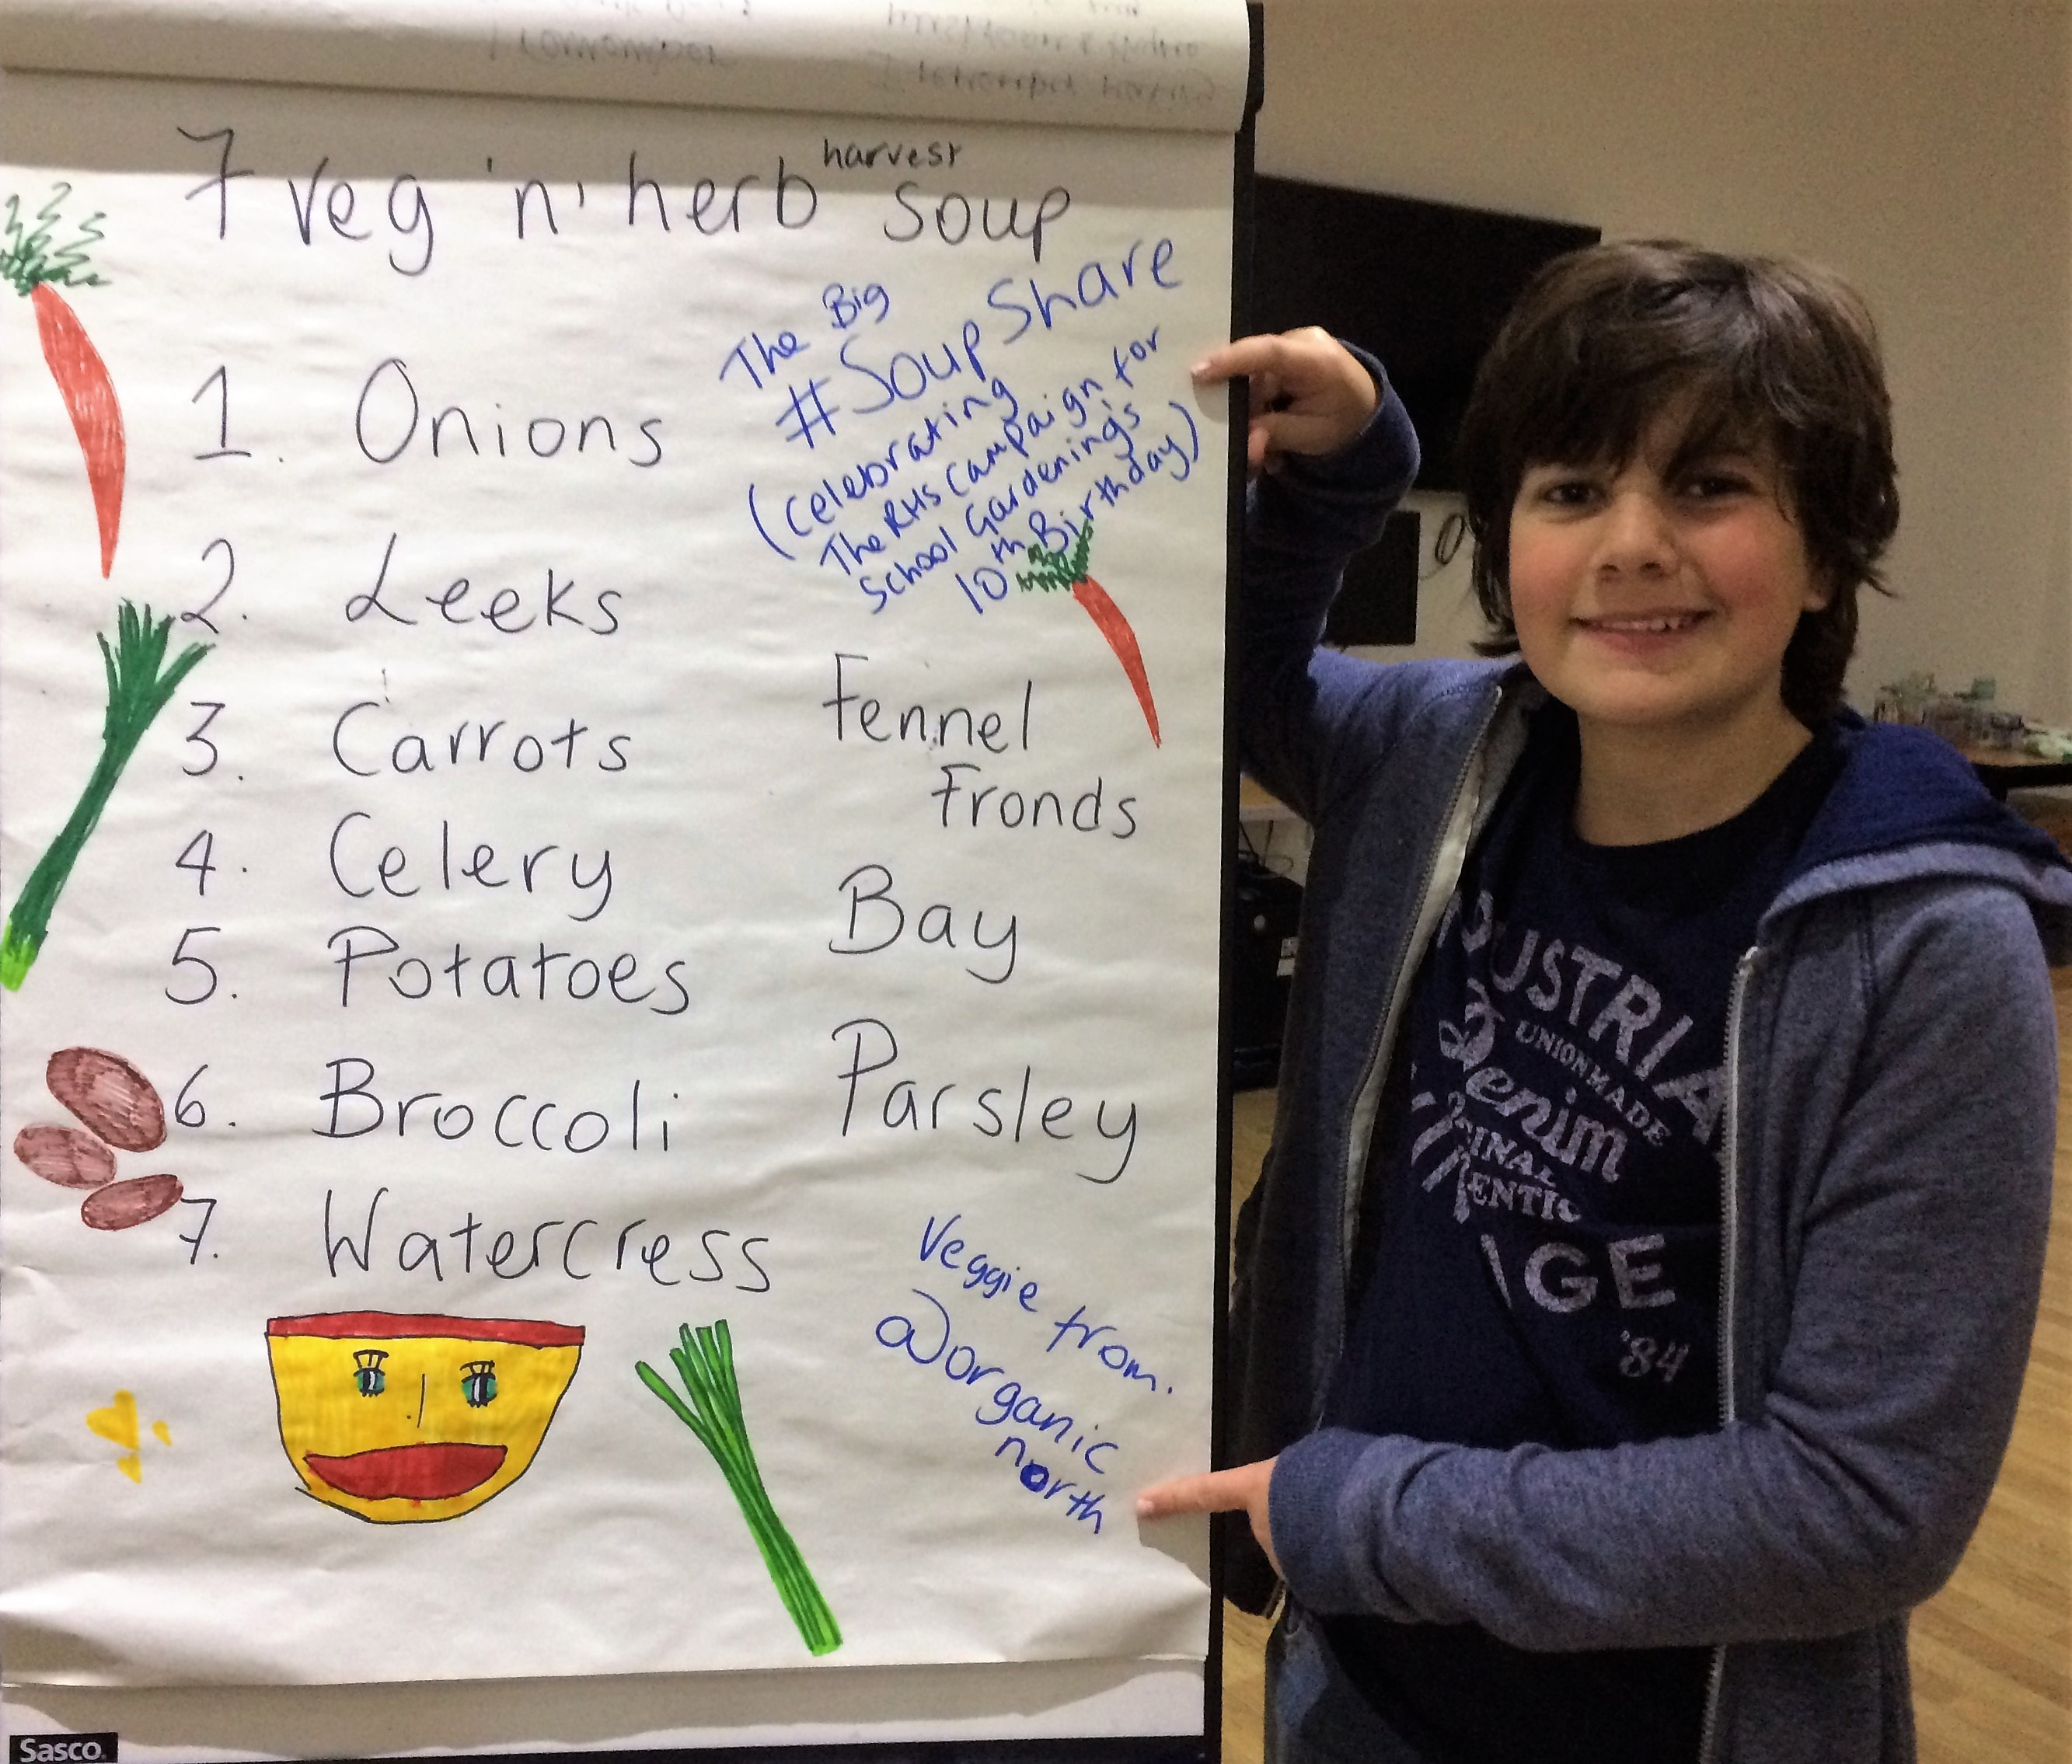 7 veg 'n' herb harvest soup
The Big
#SoupShare
(celebrating
The RHS Campaign for
School Gardening's
10th Birthday)
1. Onions
2. Leeks
3. Carrots
4. Celery
5. Potatoes
6. Broccoli
7. Watercress
Fennel
Fronds
Bay
Parsley
Veggie from.
@organic
north
Sasco
UNIONMADE
Denim
'84